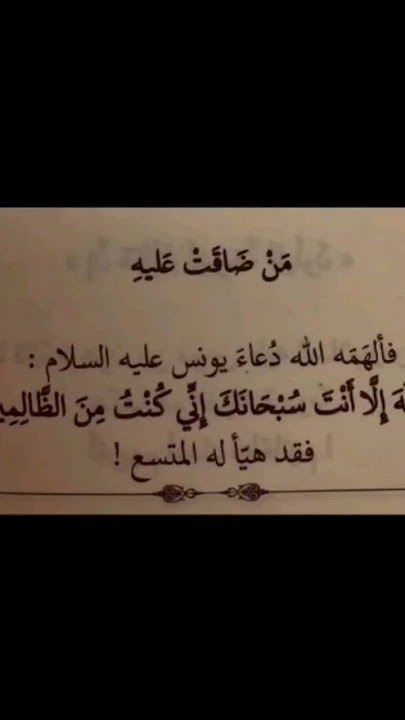 مَنْ ضَاقَتْ عَليهِ
فألهَمَه الله دُعاءَ يونس عليه السلام :
إِلَّا أَنْتَ سُبْحَانَكَ إِنِّي كُنْتُ مِنَ
فقد هيّأ له المتسع !